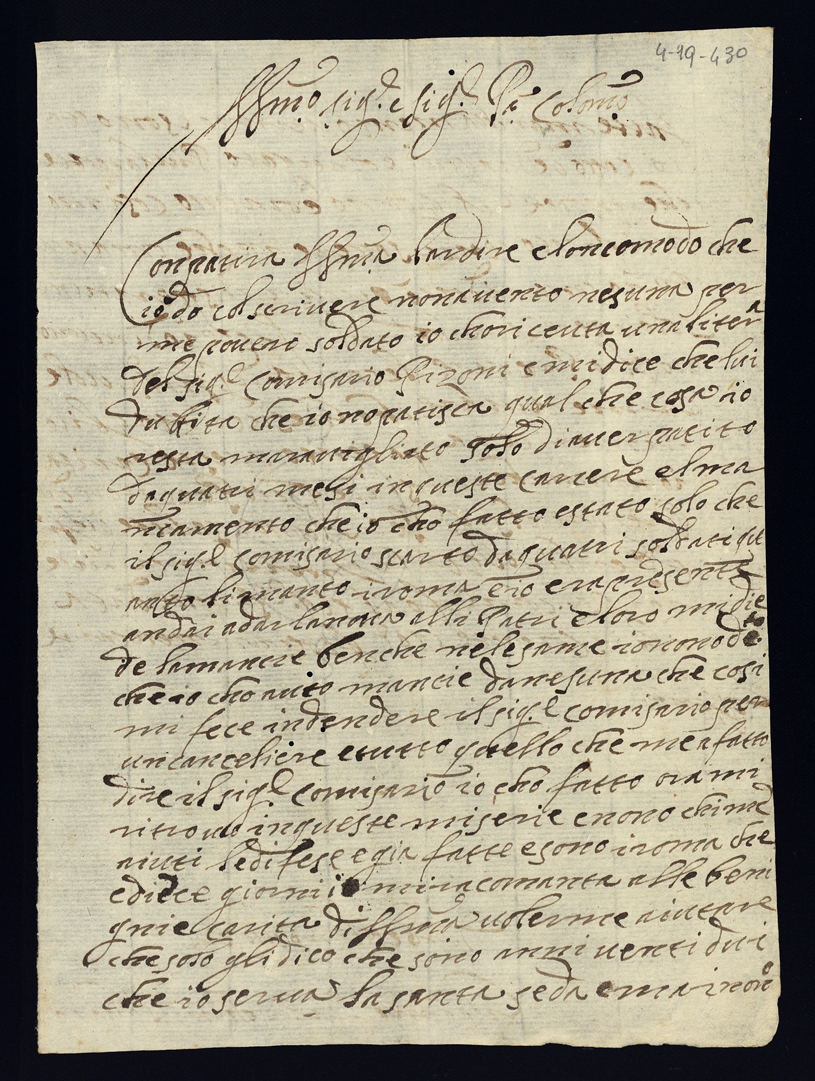 4-19-430
Illmo sig.r e sig.r P.n Colmo
Conpatira Illma lardire e loncomodo che
io do col scrivere non avento nesuna per
me povero soldato io cho riceuta una litera
del sig.r Comisario Pizoni e mi dice che lui
dubita che io no patisca qual che cosa io
resta maravigliato solo di aver patito
da quatri mesi in queste carcere el ma
ncamento che io cho fatto e stato solo che
il sig.r comisario scarto da quatri soldati qu
anto li manto i roma e io era presente
andai a dar la nova alli Patri e loro mi die
de la mancie benche nel esame io no no deto
che io cho auto mancie da nesuna che cosi
mi fece indendere il sig.r comisario per
un canceliere e tutto quello che me a fatto
dire il sig.r comisario io cho fatto ora mi
ritrovo in queste miserie e no no chi me
aiuti le difese e gia fatte e sono i roma che
e diece giorni mi racomanta alle beni
gnie carita di Illma volerme aiutare
che solo gli dico che sono anni venti dui
che io serva la santa seda e mai non